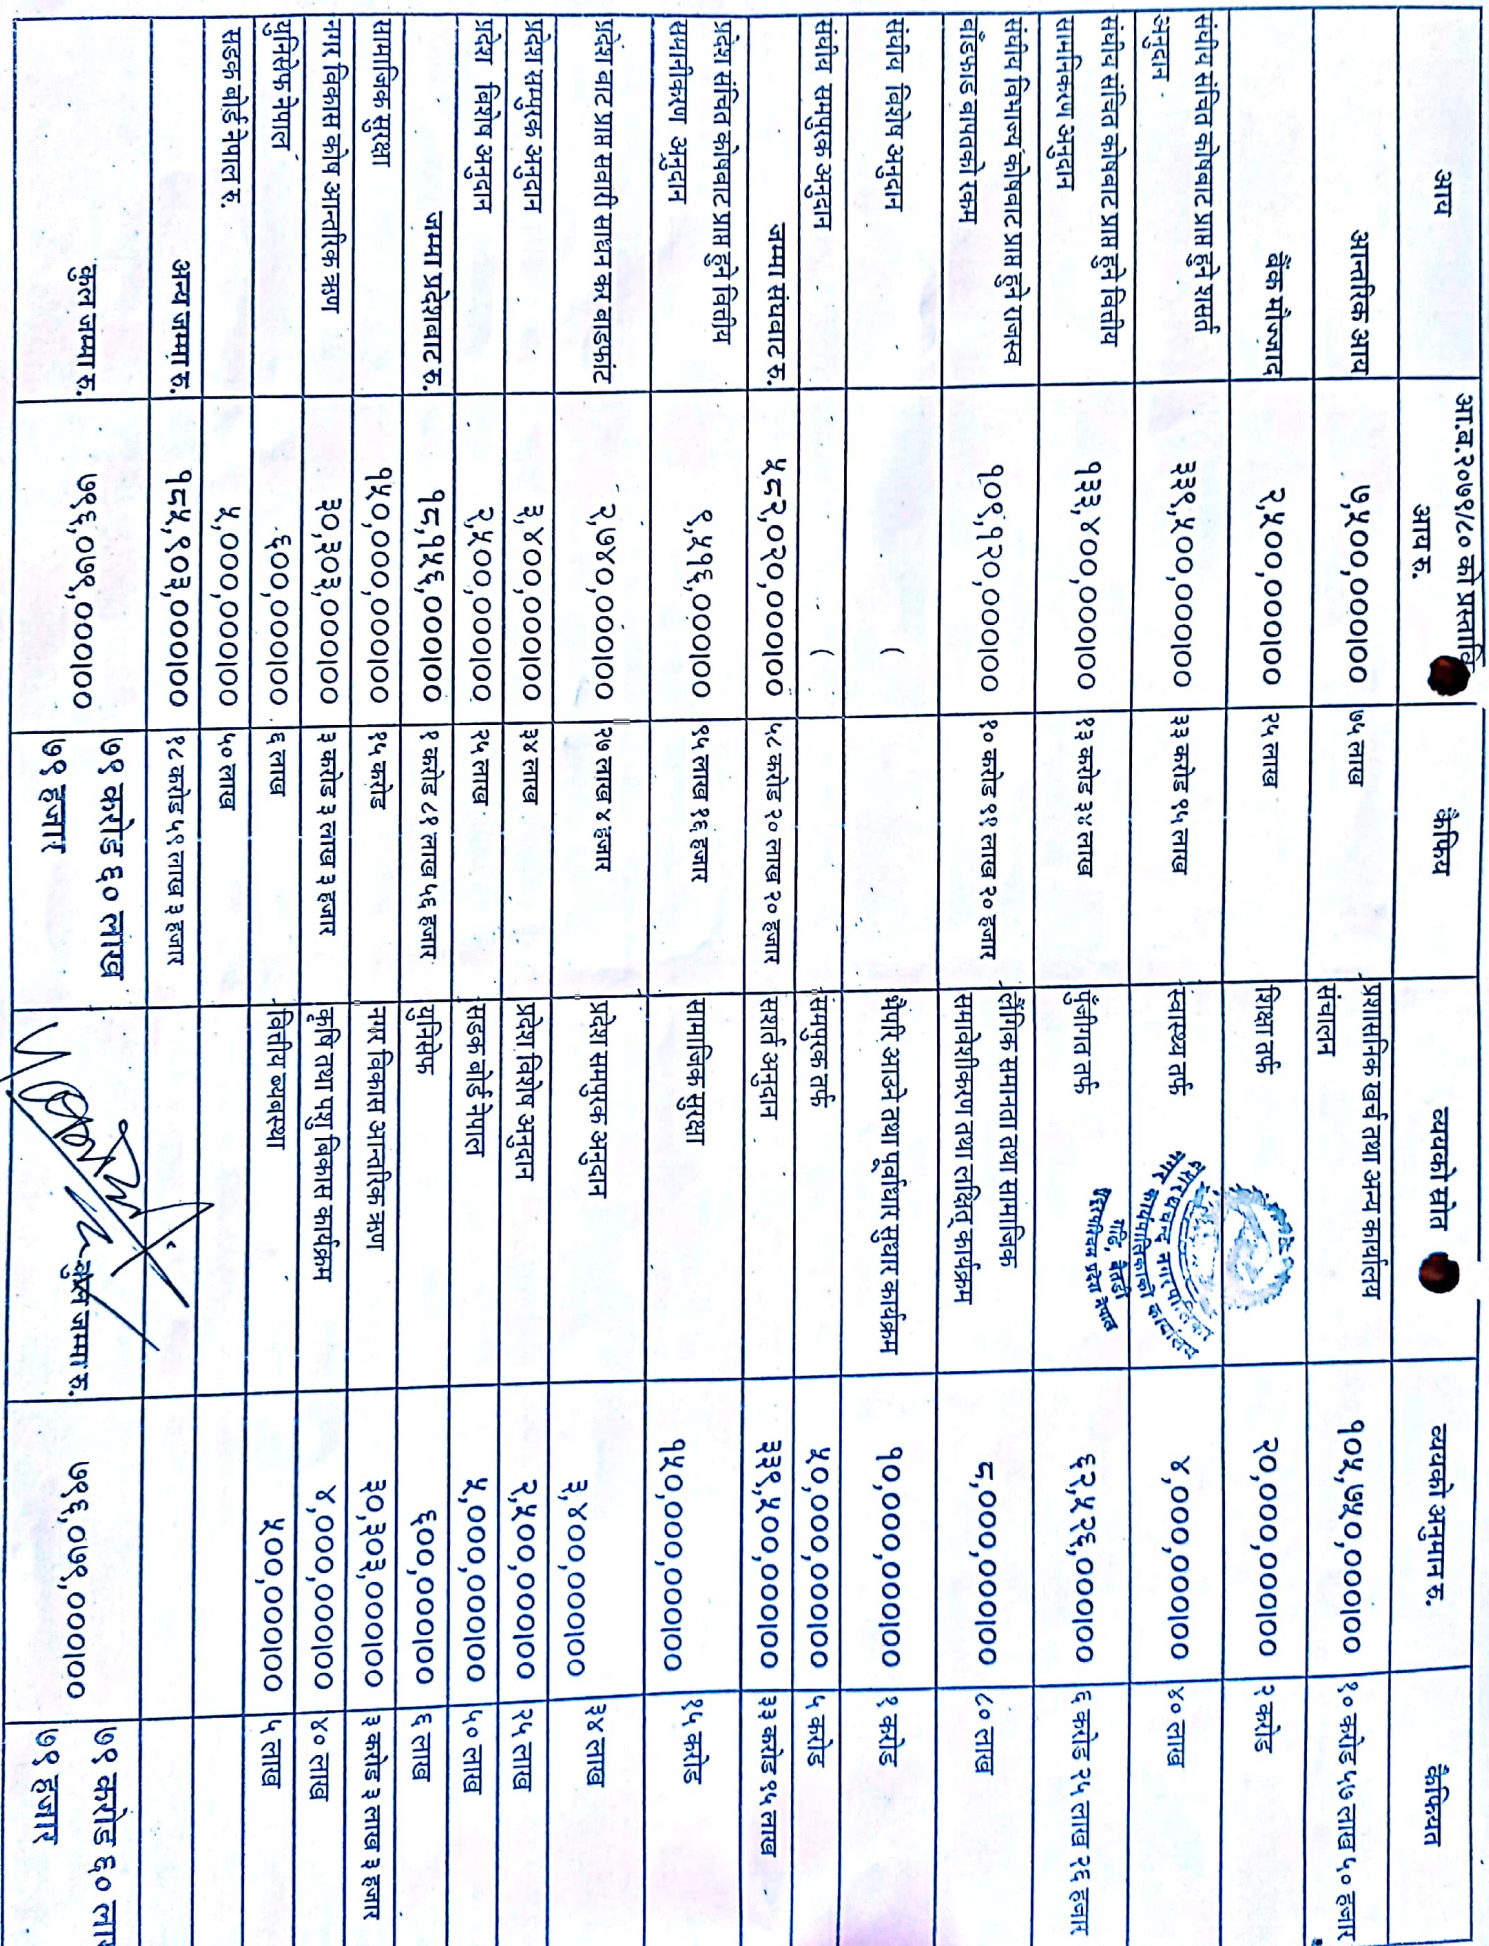 आय
आ.व.२०७९/८० को प्रस्तावि
आय रु.
कैफिय
व्ययको स्रोत
व्ययको अनुमान रु.
कैफियत
आन्तरिक आय
७,५००,०००|००
७५ लाख
प्रशासनिक खर्च तथा अन्य कार्यालय
संचालन
१०५,७५०,०००|००
१० करोड ५७ लाख ५० हजार
बैंक मौज्जाद
२,५००,०००|००
२५ लाख
शिक्षा तर्फ
२०,०००,०००|००
२ करोड
संघीय संचित कोषबाट प्राप्त हुने शसर्त
अनुदान
३३९,५००,०००|००
३३ करोड ९५ लाख
स्वास्थ्य तर्फ
४,०००,०००|००
४० लाख
संघीय संचित कोषबाट प्राप्त हुने वित्तीय
सामानिकरण अनुदान
१३३,४००,०००|००
१३ करोड ३४ लाख
पुँजीगत तर्फ
६२,५२६,०००|००
६ करोड २५ लाख २६ हजार
नगर कार्यपालिकाको कार्यालय
सुदूरपश्चिम प्रदेश नेपाल
संघीय विभाज्य कोषबाट प्राप्त हुने राजस्व
बाँडफाड बापतको रकम
१०९,१२०,०००|००
१० करोड ९१ लाख २० हजार
लैंगिक समानता तथा सामाजिक
समावेशीकरण तथा लक्षित् कार्यक्रम
८,०००,०००|००
८० लाख
संघीय विशेष अनुदान
भैपरी आउने तथा पूर्वाधार सुधार कार्यक्रम
१०,०००,०००|००
१ करोड
संघीय समपुरक अनुदान
समपुरक तर्फ
५०,०००,०००|००
५ करोड
जम्मा संघबाट रु.
५८२,०२०,०००|००
५८ करोड २० लाख २० हजार
सशर्त अनुदान
३३९,५००,०००|००
३३ करोड ९५ लाख
प्रदेश संचित कोषबाट प्राप्त हुने वित्तीय
समानीकरण अनुदान
९,५१६,०००|००
९५ लाख १६ हजार
सामाजिक सुरक्षा
१५०,०००,०००|००
१५ करोड
प्रदेश बाट प्राप्त सवारी साधन कर बाडफांट
२,७४०,०००|००
२७ लाख ४ हजार
प्रदेश समपुरक अनुदान
३,४००,०००|००
३४ लाख
प्रदेश समपुरक अनुदान
३,४००,०००|००
३४ लाख
प्रदेश विशेष अनुदान
२,५००,०००|००
२५ लाख
प्रदेश विशेष अनुदान
२,५००,०००|००
२५ लाख
सडक बोर्ड नेपाल
५,०००,०००|००
५० लाख
जम्मा प्रदेशबाट रु.
१८,१५६,०००|००
१ करोड ८१ लाख ५६ हजार
युनिसेफ
६००,०००|००
६ लाख
सामाजिक सुरक्षा
१५०,०००,०००|००
१५ करोड
नगर विकास आन्तरिक ऋण
३०,३०३,०००|००
३ करोड ३ लाख ३ हजार
नगर विकास कोष आन्तरिक ऋण
३०,३०३,०००|००
३ करोड ३ लाख ३ हजार
कृषि तथा पशु विकास कार्यक्रम
४,०००,०००|००
४० लाख
युनिसेफ नेपाल
६००,०००|००
६ लाख
वित्तीय ब्यवस्था
५००,०००|००
५ लाख
सडक बोर्ड नेपाल रु.
५,०००,०००|००
५० लाख
अन्य जम्मा रु.
१८५,९०३,०००|००
१८ करोड ५९ लाख ३ हजार
कुल जम्मा रु.
७९६,०७९,०००|००
७९ करोड ६० लाख
७९ हजार
कुल जम्मा रु.
७९६,०७९,०००|००
७९ करोड ६० लाख
७९ हजार